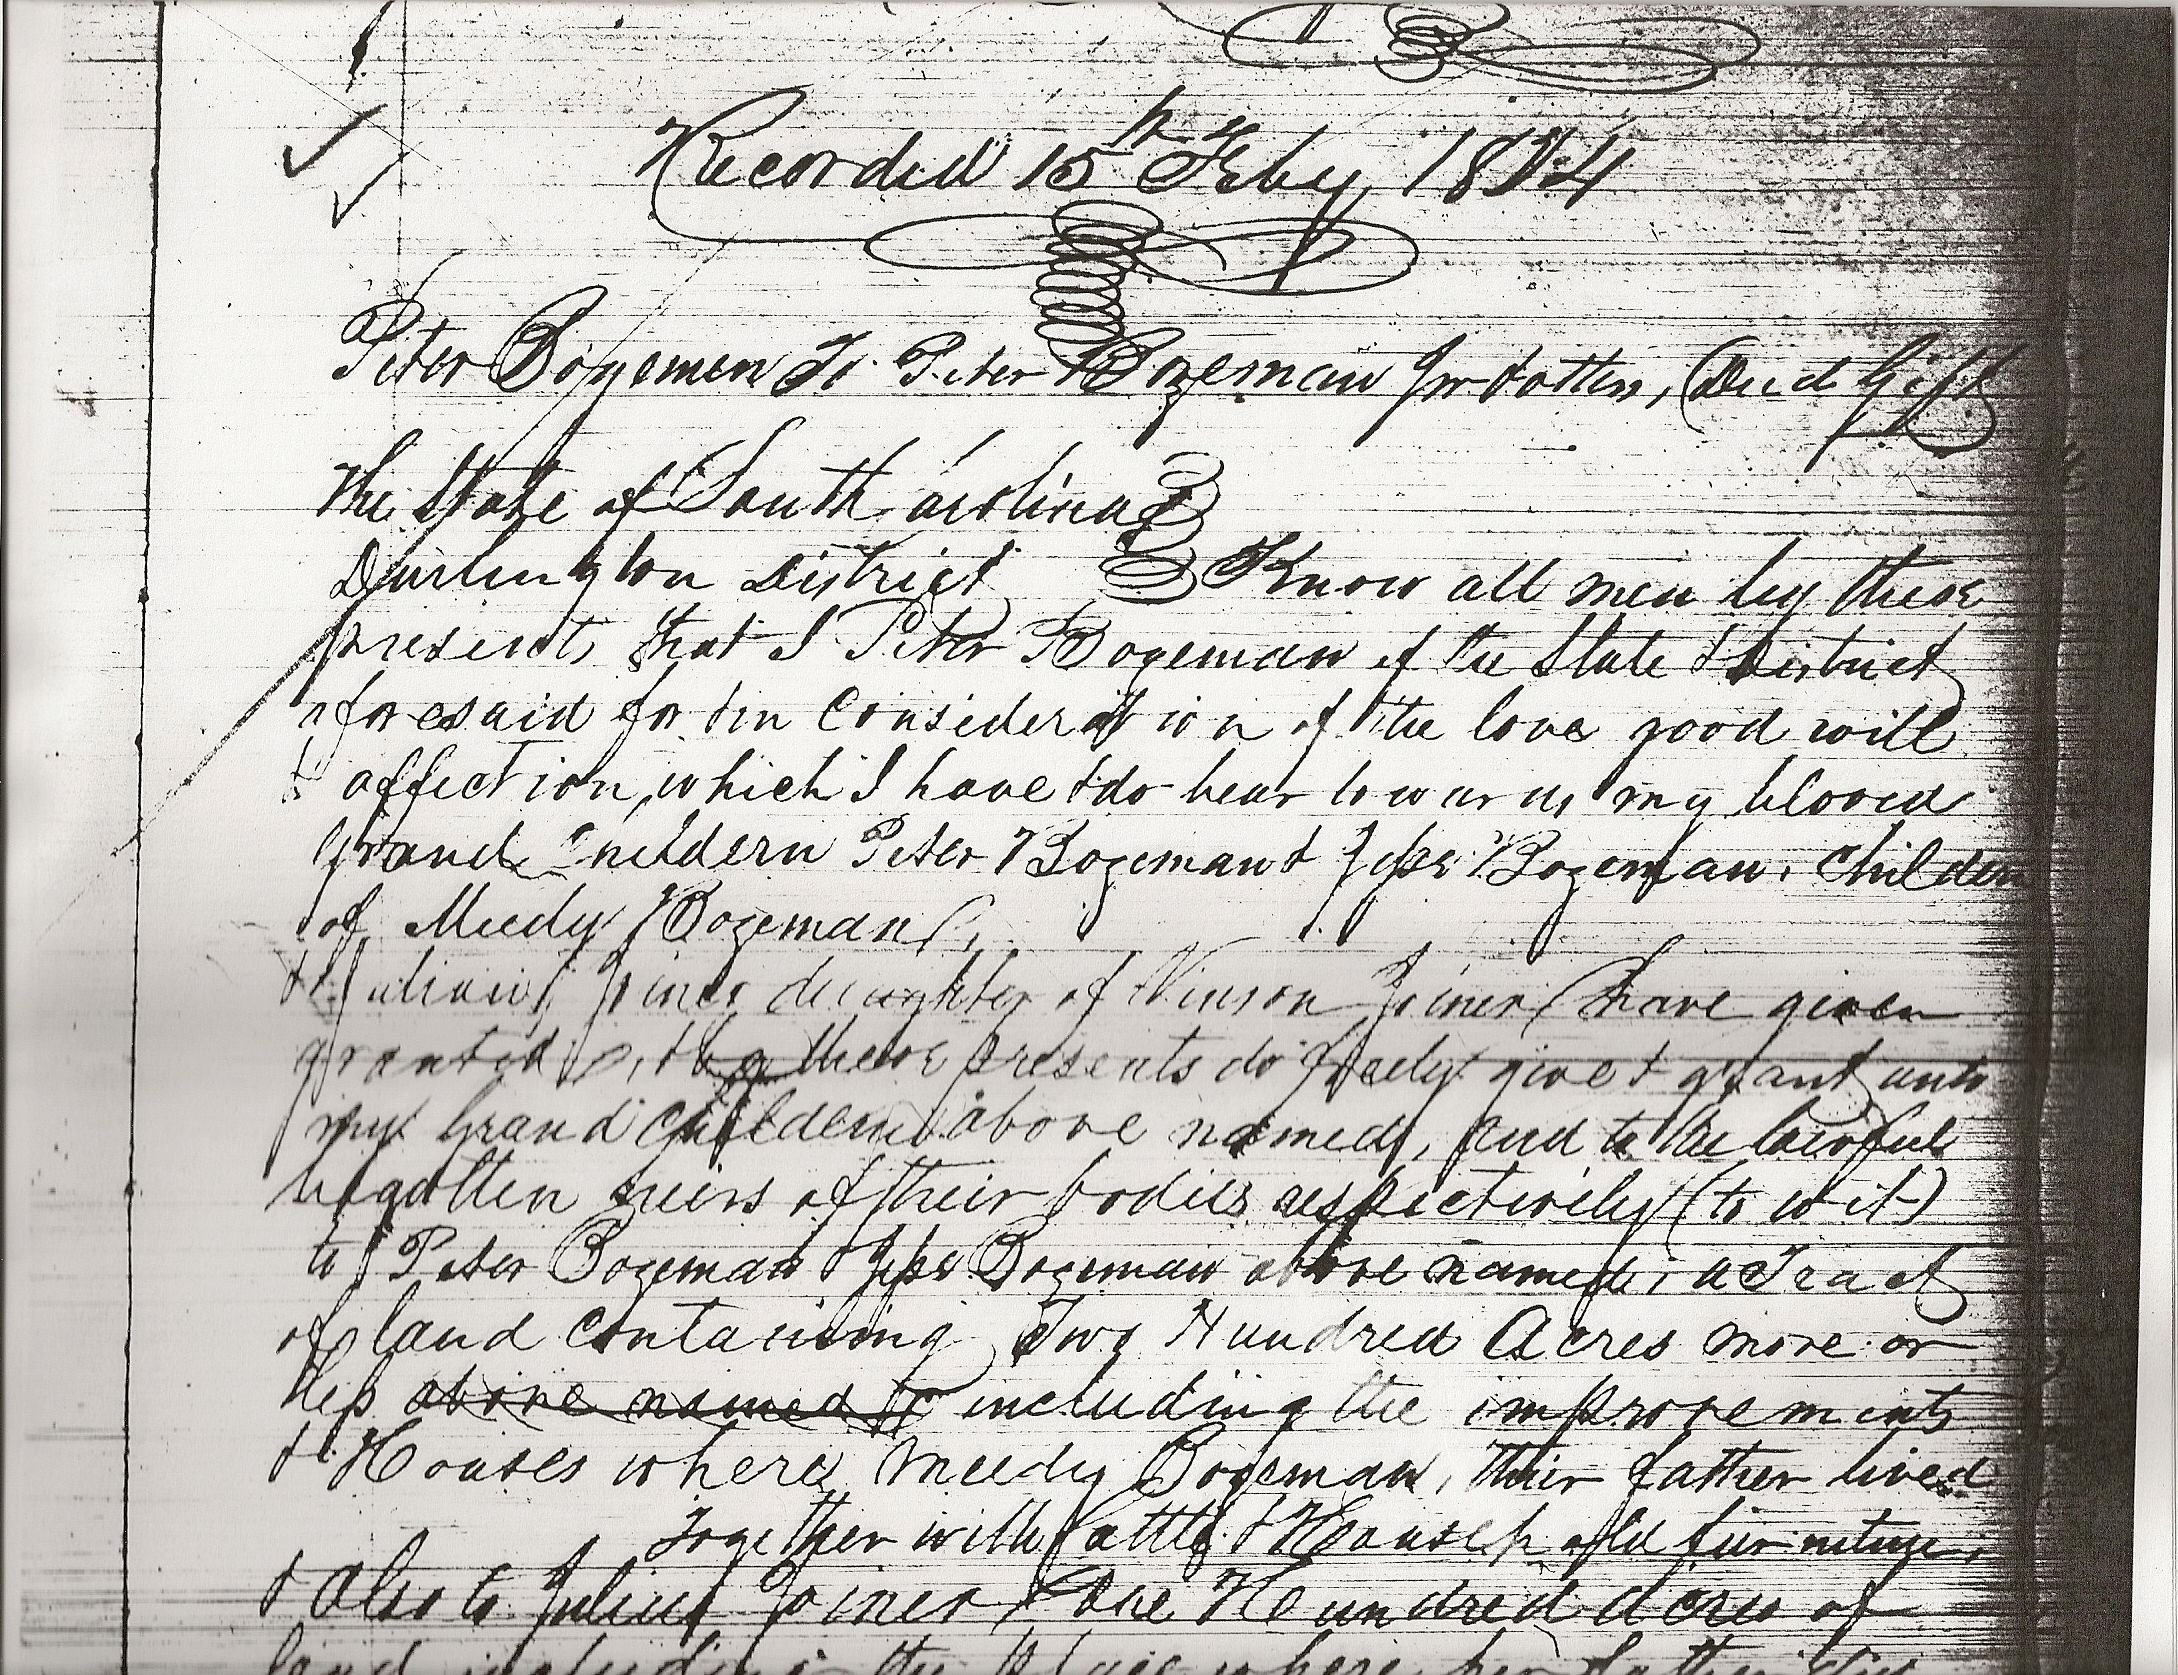 Recorded 15th Feby 18
Peter Bozeman To Peter Bozeman Jnr & others, (Deed Gift
The State of South Carolina
Darlington District Know all men by these
presents that I Peter Bozeman of the State & District
aforesaid for & in Consideration of the love good will
& affection, which I have & do bear towards my beloved
Grand Childern Peter Bozeman & Jesse Bozeman, Childern
of Meedy Bozeman,
& Joiner daughter of Vinson Joiner (have given
granted & by these presents do freely give & grant unto
my Grand Childern above named, and to the lawful
begotten heirs of their bodies respectively (to wit)
to Peter Bozeman & Jesse Bozeman above named, a Tract
of land containing Two Hundred Acres more or
less above named to including the improvements
& Houses where Meedy Bozeman, their father lived
together with Cattle & Household furniture,
& Also to Joiner One Hundred Acres of
land including the Place where her father